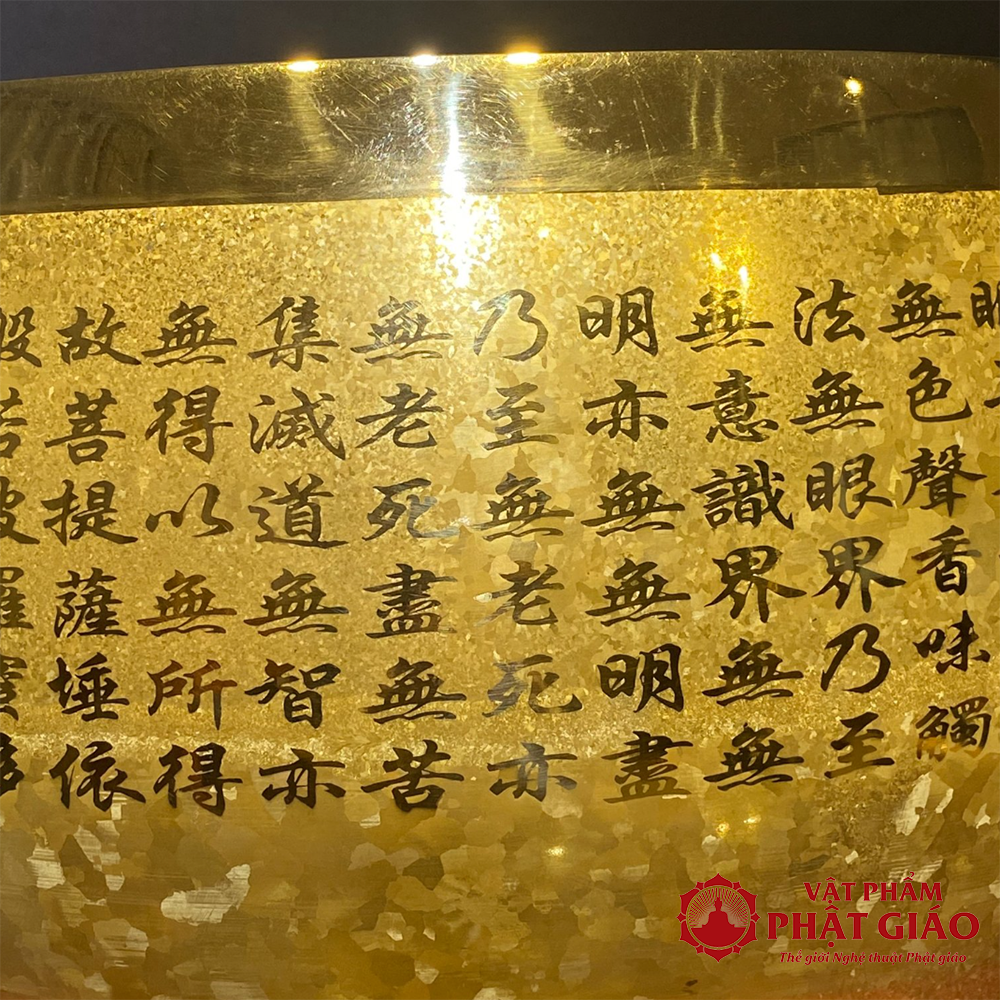 無色聲香味觸
法無眼界乃至
無意識界無無
明亦無無明盡
乃至無老死亦
無老死盡無苦
集滅道無智亦
無得以無所得
故菩提薩埵依
VẬT PHẨM
PHẬT GIÁO
Thế giới Nghệ thuật Phật giáo